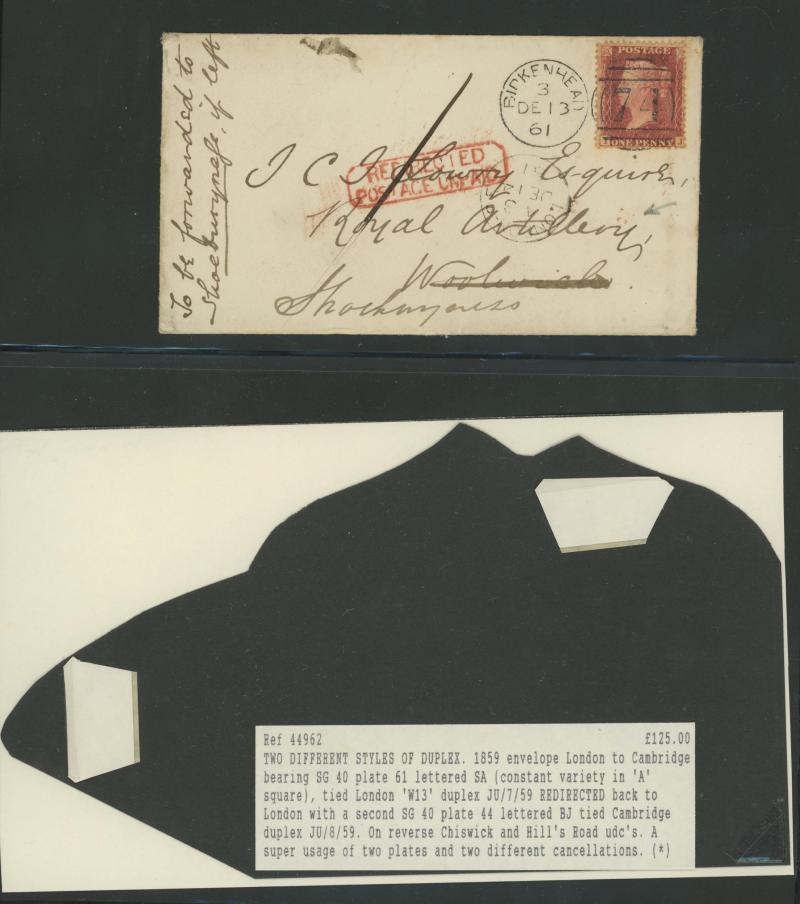 To be forwarded to
Shoeburyness, if left
BIRKENHEAD
3
DE 13
61
POSTAGE
74
ONE PENNY
REDIRECTED
POSTAGE UNPAID
J C J Lowry Esquire,
Royal Artillery,
Woolwich
Shoeburyness
Ref 44962 £125.00
TWO DIFFERENT STYLES OF DUPLEX. 1859 envelope London to Cambridge
bearing SG 40 plate 61 lettered SA (constant variety in 'A'
square), tied London 'W13' duplex JU/7/59 REDIRECTED back to
London with a second SG 40 plate 44 lettered BJ tied Cambridge
duplex JU/8/59. On reverse Chiswick and Hill's Road udc's. A
super usage of two plates and two different cancellations. (*)